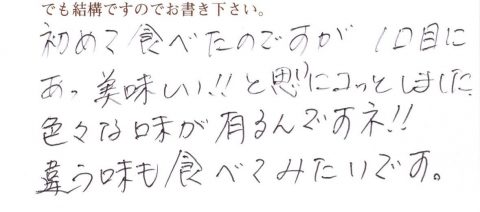 でも結構ですのでお書き下さい。
初めて食べたのですが 1口目に
あっ美味しい!!と思いニコッとしました
色々な味が有るんですネ!!
違う味も食べてみたいです。